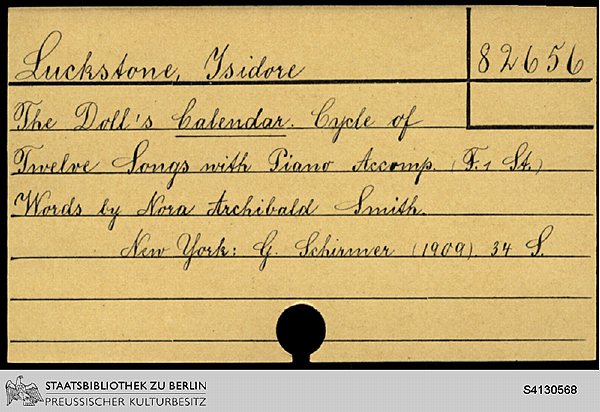 Luckstone, Isidore
82656
The Doll's Calendar. Cycle of
Twelve Songs with Piano Accomp. (F. 1 St.)
Words by Nora Archibald Smith.
New York: G. Schirmer (1909). 34 S.
STAATSBIBLIOTHEK ZU BERLIN
PREUSSISCHER KULTURBESITZ
S4130568